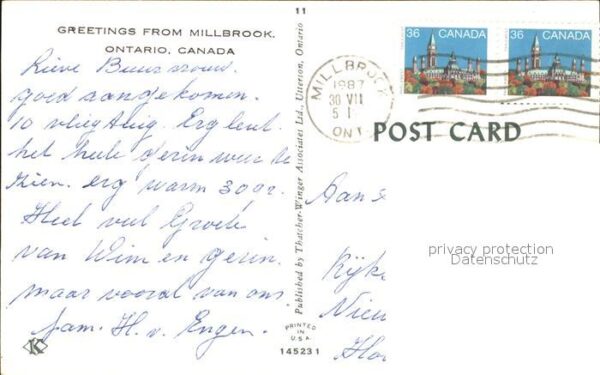 11
GREETINGS FROM MILLBROOK.
ONTARIO, CANADA
36 CANADA
36 CANADA
MILLBROOK
1987
30 VII
ONT
POST CARD
Lieve
goed aangekomen.
10 vliegtuig. Erg leuk.
het hele gezin weer te
zien. erg warm 30 gr.
Heel veel Groete
van Wim en
maar vooral van ons.
fam. H. v. Engen.
K
Published by Thatcher-Winger Associates Ltd., Utterson, Ontario
PRINTED IN
U.S.A.
145231
Aan
privacy protection
Datenschutz
Rijke
Nieu